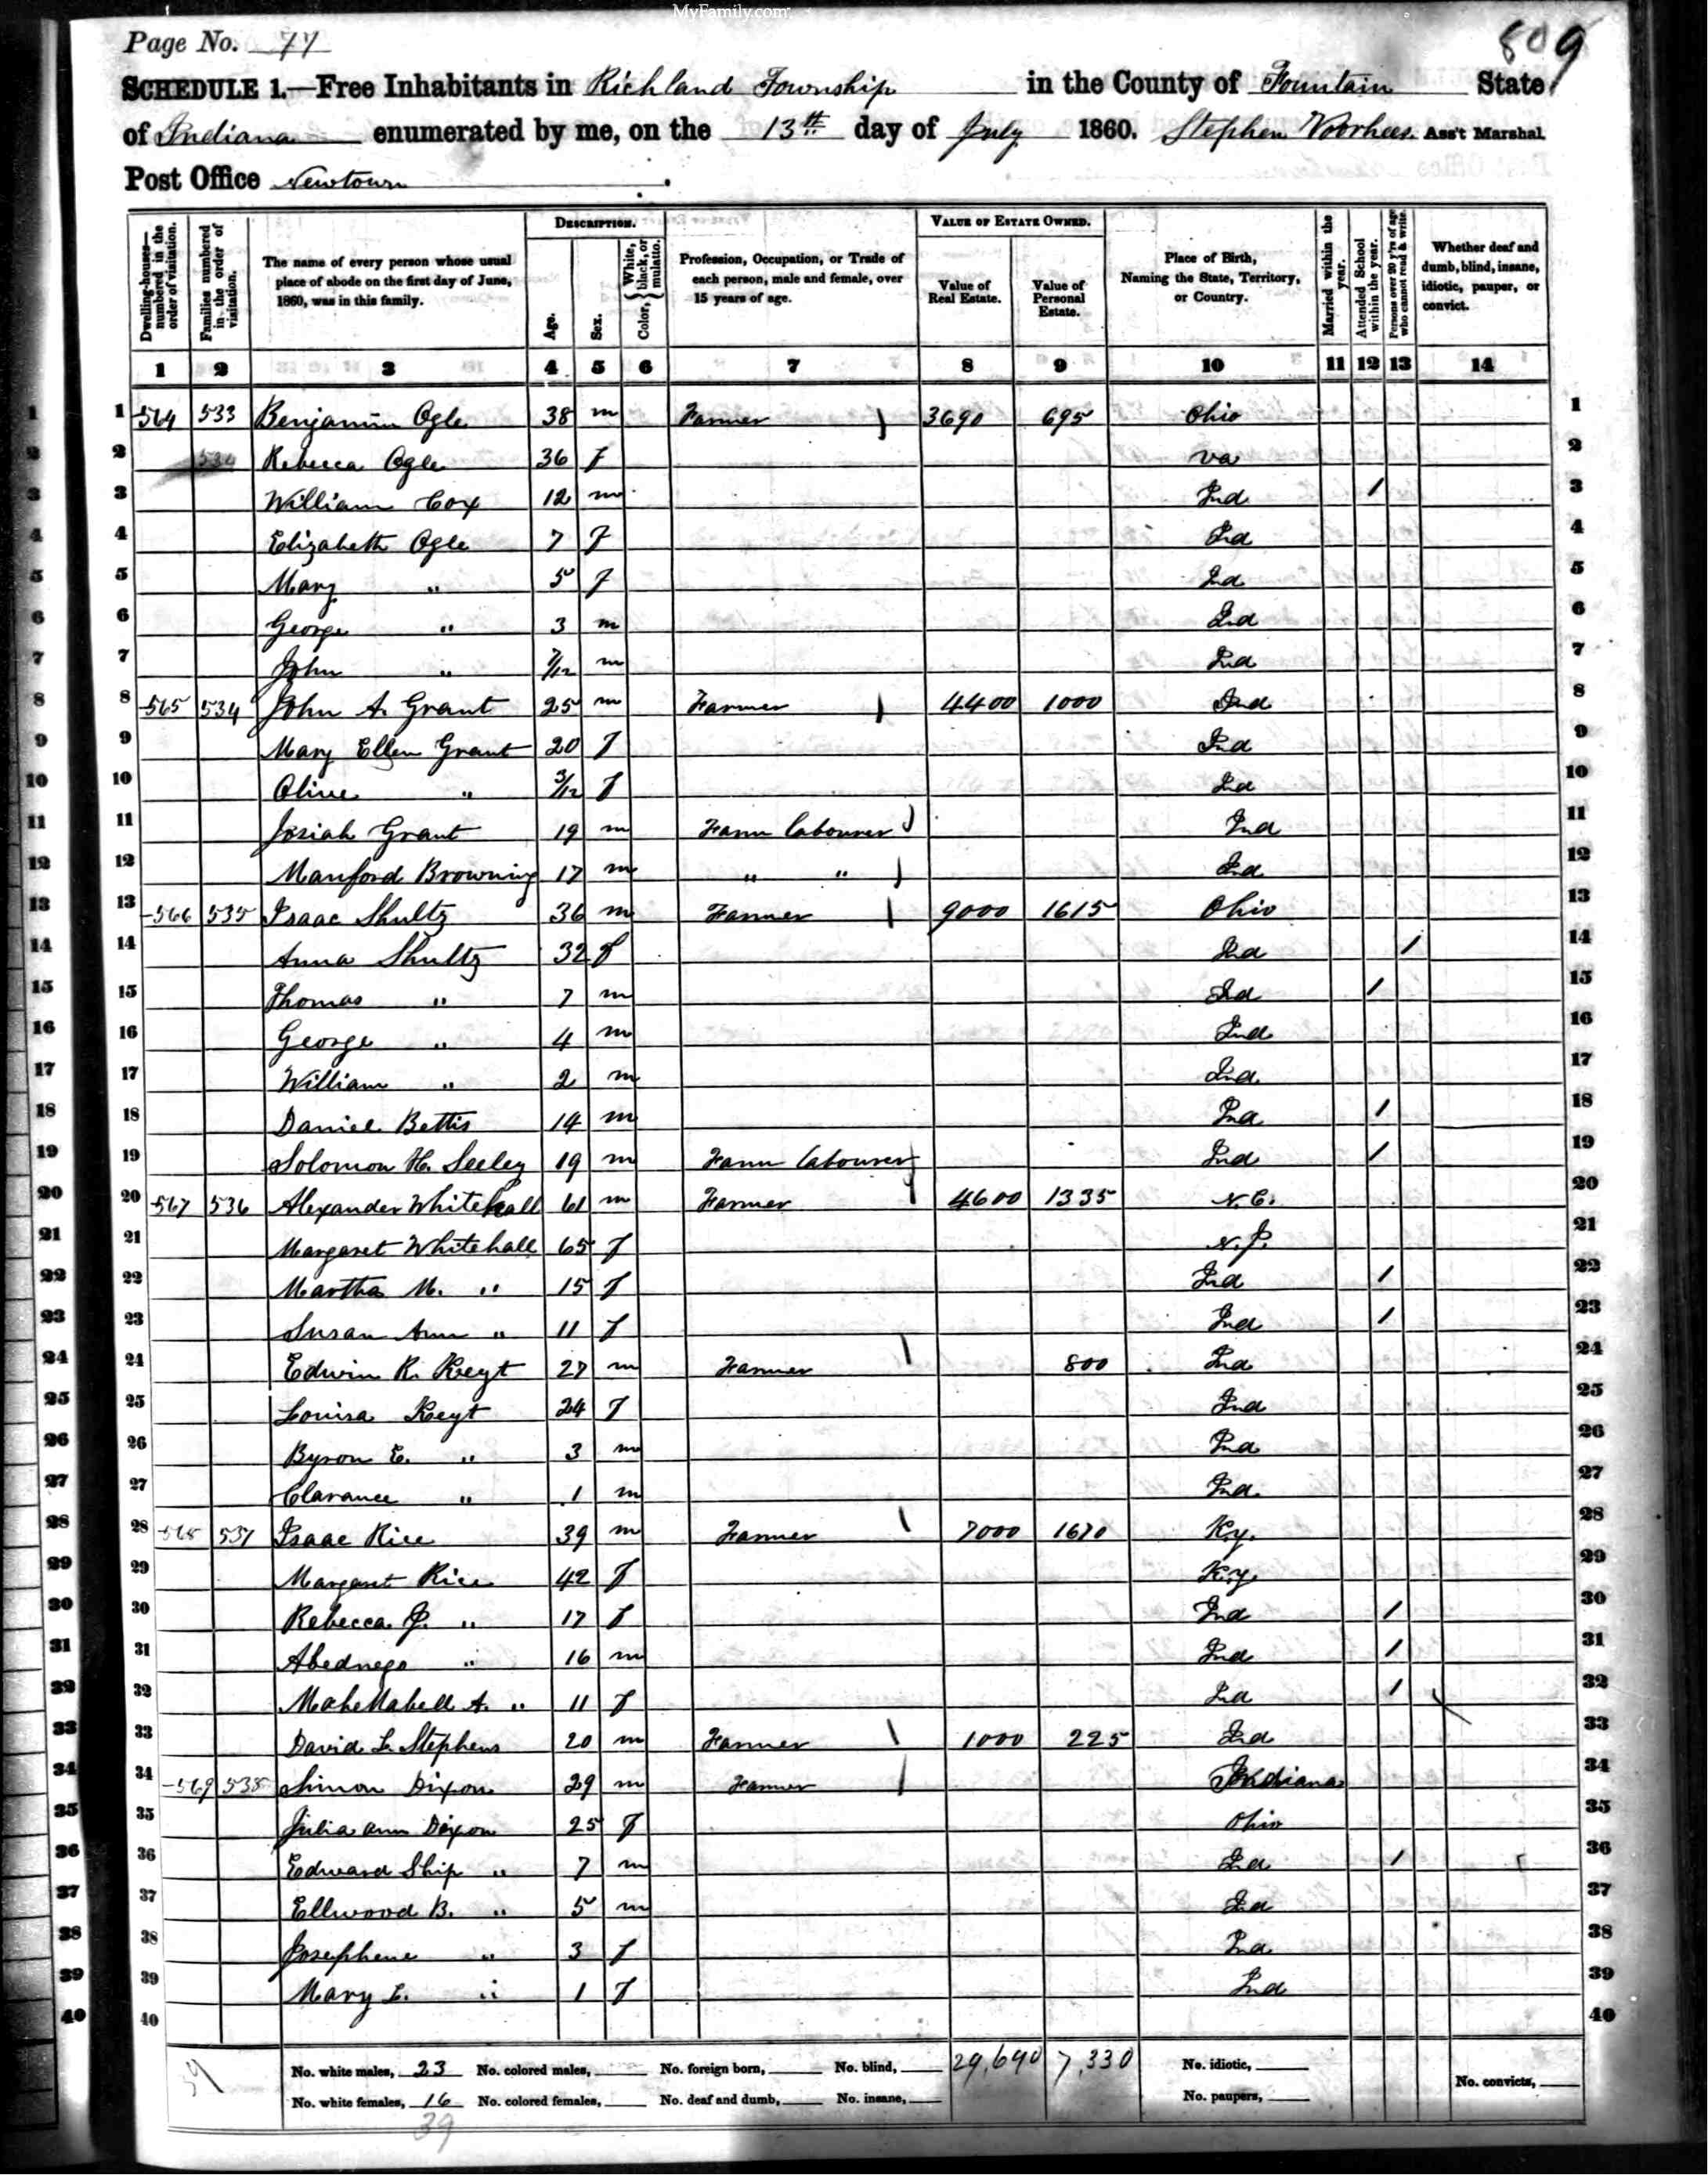 MyFamily.com
Page No. 77
809
SCHEDULE 1.—Free Inhabitants in Richland Township in the County of Fountain State
of Indiana enumerated by me, on the 13th day of July 1860. Stephen Voorhees Ass't Marshal
Post Office Newtown
Dwelling-houses— numbered in the order of visitation.
Families numbered in the order of visitation.
The name of every person whose usual place of abode on the first day of June, 1860, was in this family.
DESCRIPTION.
Age.
Sex.
Color, { White, black, or mulatto.
Profession, Occupation, or Trade of each person, male and female, over 15 years of age.
VALUE OF ESTATE OWNED.
Value of Real Estate.
Value of Personal Estate.
Place of Birth, Naming the State, Territory, or Country.
Married within the year.
Attended School within the year.
Persons over 20 y'rs of age who cannot read & write.
Whether deaf and dumb, blind, insane, idiotic, pauper, or convict.
1 2 3 4 5 6 7 8 9 10 11 12 13 14
1 564 533 Benjamin Ogle 38 m Farmer 3690 695 Ohio 1
2 534 Rebecca Ogle 36 f Va 2
3 William Cox 12 m Ind / 3
4 Elizabeth Ogle 7 f Ind 4
5 Mary " 5 f Ind 5
6 George " 3 m Ind 6
7 John " 7/12 m Ind 7
8 565 534 John A. Grant 25 m Farmer 4400 1000 Ind 8
9 Mary Ellen Grant 20 f Ind 9
10 Olive " 3/12 f Ind 10
11 Josiah Grant 19 m Farm labourer Ind 11
12 Manford Browning 17 m " " Ind 12
13 566 535 Isaac Shultz 36 m Farmer 9000 1615 Ohio 13
14 Anna Shultz 32 f Ind / 14
15 Thomas " 7 m Ind / 15
16 George " 4 m Ind 16
17 William " 2 m Ind 17
18 Daniel Bettis 14 m Ind / 18
19 Solomon H. Seeley 19 m Farm labourer Ind / 19
20 567 536 Alexander Whitehall 61 m Farmer 4600 1335 N.C. 20
21 Margaret Whitehall 65 f N.J. 21
22 Martha M. " 15 f Ind / 22
23 Susan Ann " 11 f Ind / 23
24 Edwin R. Keyt 27 m Farmer 800 Ind 24
25 Louisa Keyt 24 f Ind 25
26 Byron E. " 3 m Ind 26
27 Clarance " 1 m Ind 27
28 568 537 Isaac Rice 39 m Farmer 7000 1670 Ky. 28
29 Margaret Rice 42 f Ky. 29
30 Rebecca J. " 17 f Ind / 30
31 Abednego " 16 m Ind / 31
32 A. " 11 f Ind / 32
33 David L. Stephens 20 m Farmer 1000 225 Ind 33
34 569 538 Simon Dixon 29 m Farmer Indiana 34
35 Julia Ann Dixon 25 f Ohio 35
36 Edward Ship " 7 m Ind / 36
37 Ellwood B. " 5 m Ind 37
38 Josephene " 3 f Ind 38
39 Mary L. " 1 f Ind 39
40 40
No. white males, 23 No. colored males, No. foreign born, No. blind, 29,690 7,330 No. idiotic,
No. white females, 16 No. colored females, No. deaf and dumb, No. insane, No. paupers, No. convicts,
39